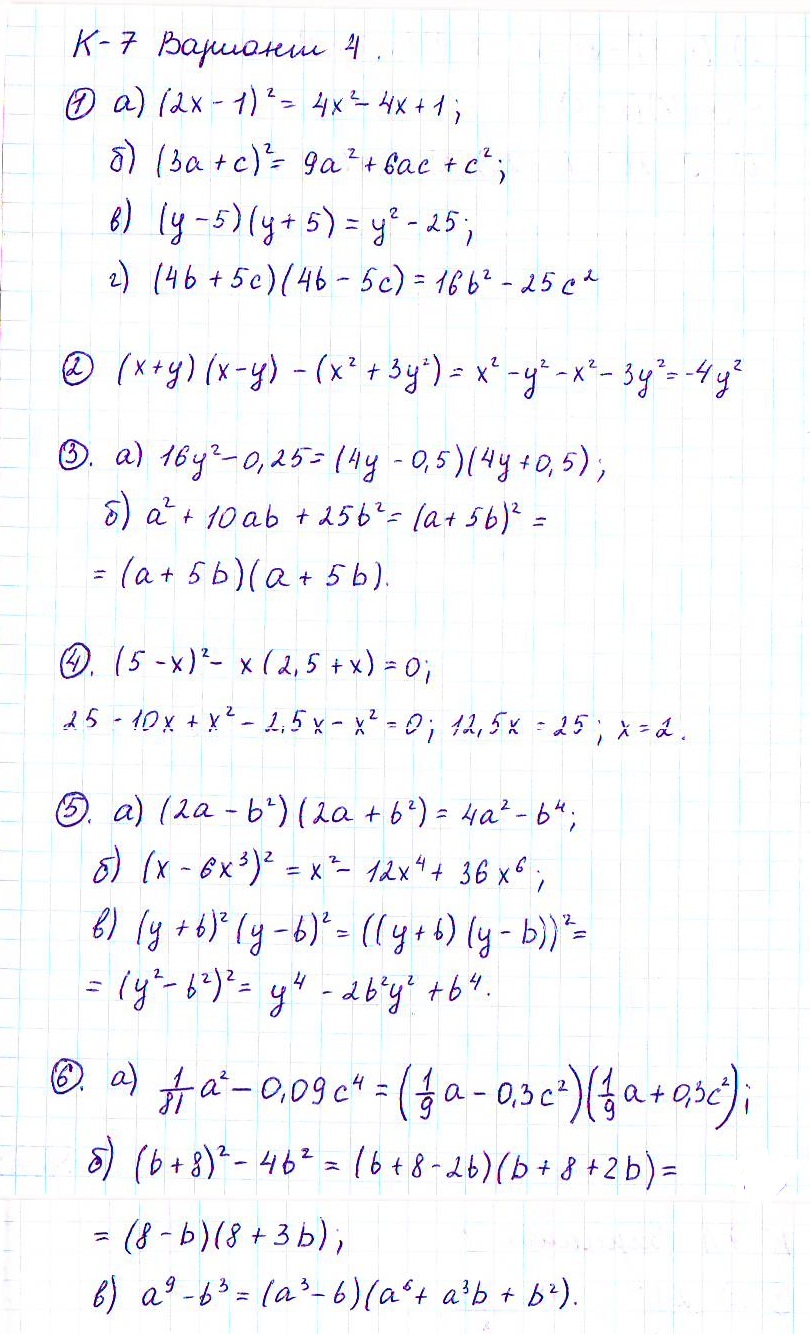 К-7 Вариант 4.
① а) (2x - 1)² = 4x² - 4x + 1;
б) (3a + c)² = 9a² + 6ac + c²;
в) (y - 5)(y + 5) = y² - 25;
г) (4b + 5c)(4b - 5c) = 16b² - 25c²
② (x+y)(x-y) - (x² + 3y²) = x² - y² - x² - 3y² = -4y²
③. а) 16y² - 0,25 = (4y - 0,5)(4y + 0,5);
б) a² + 10ab + 25b² = (a + 5b)² =
= (a + 5b)(a + 5b).
④. (5 - x)² - x(2,5 + x) = 0;
25 - 10x + x² - 2,5x - x² = 0; 12,5x = 25; x = 2.
⑤. а) (2a - b²)(2a + b²) = 4a² - b⁴;
б) (x - 6x³)² = x² - 12x⁴ + 36x⁶;
в) (y + b)² (y - b)² = ((y + b)(y - b))² =
= (y² - b²)² = y⁴ - 2b²y² + b⁴.
⑥. а) 1/81 a² - 0,09c⁴ = (1/9 a - 0,3c²)(1/9 a + 0,3c²);
б) (b + 8)² - 4b² = (b + 8 - 2b)(b + 8 + 2b) =
= (8 - b)(8 + 3b);
в) a⁹ - b³ = (a³ - b)(a⁶ + a³b + b²).